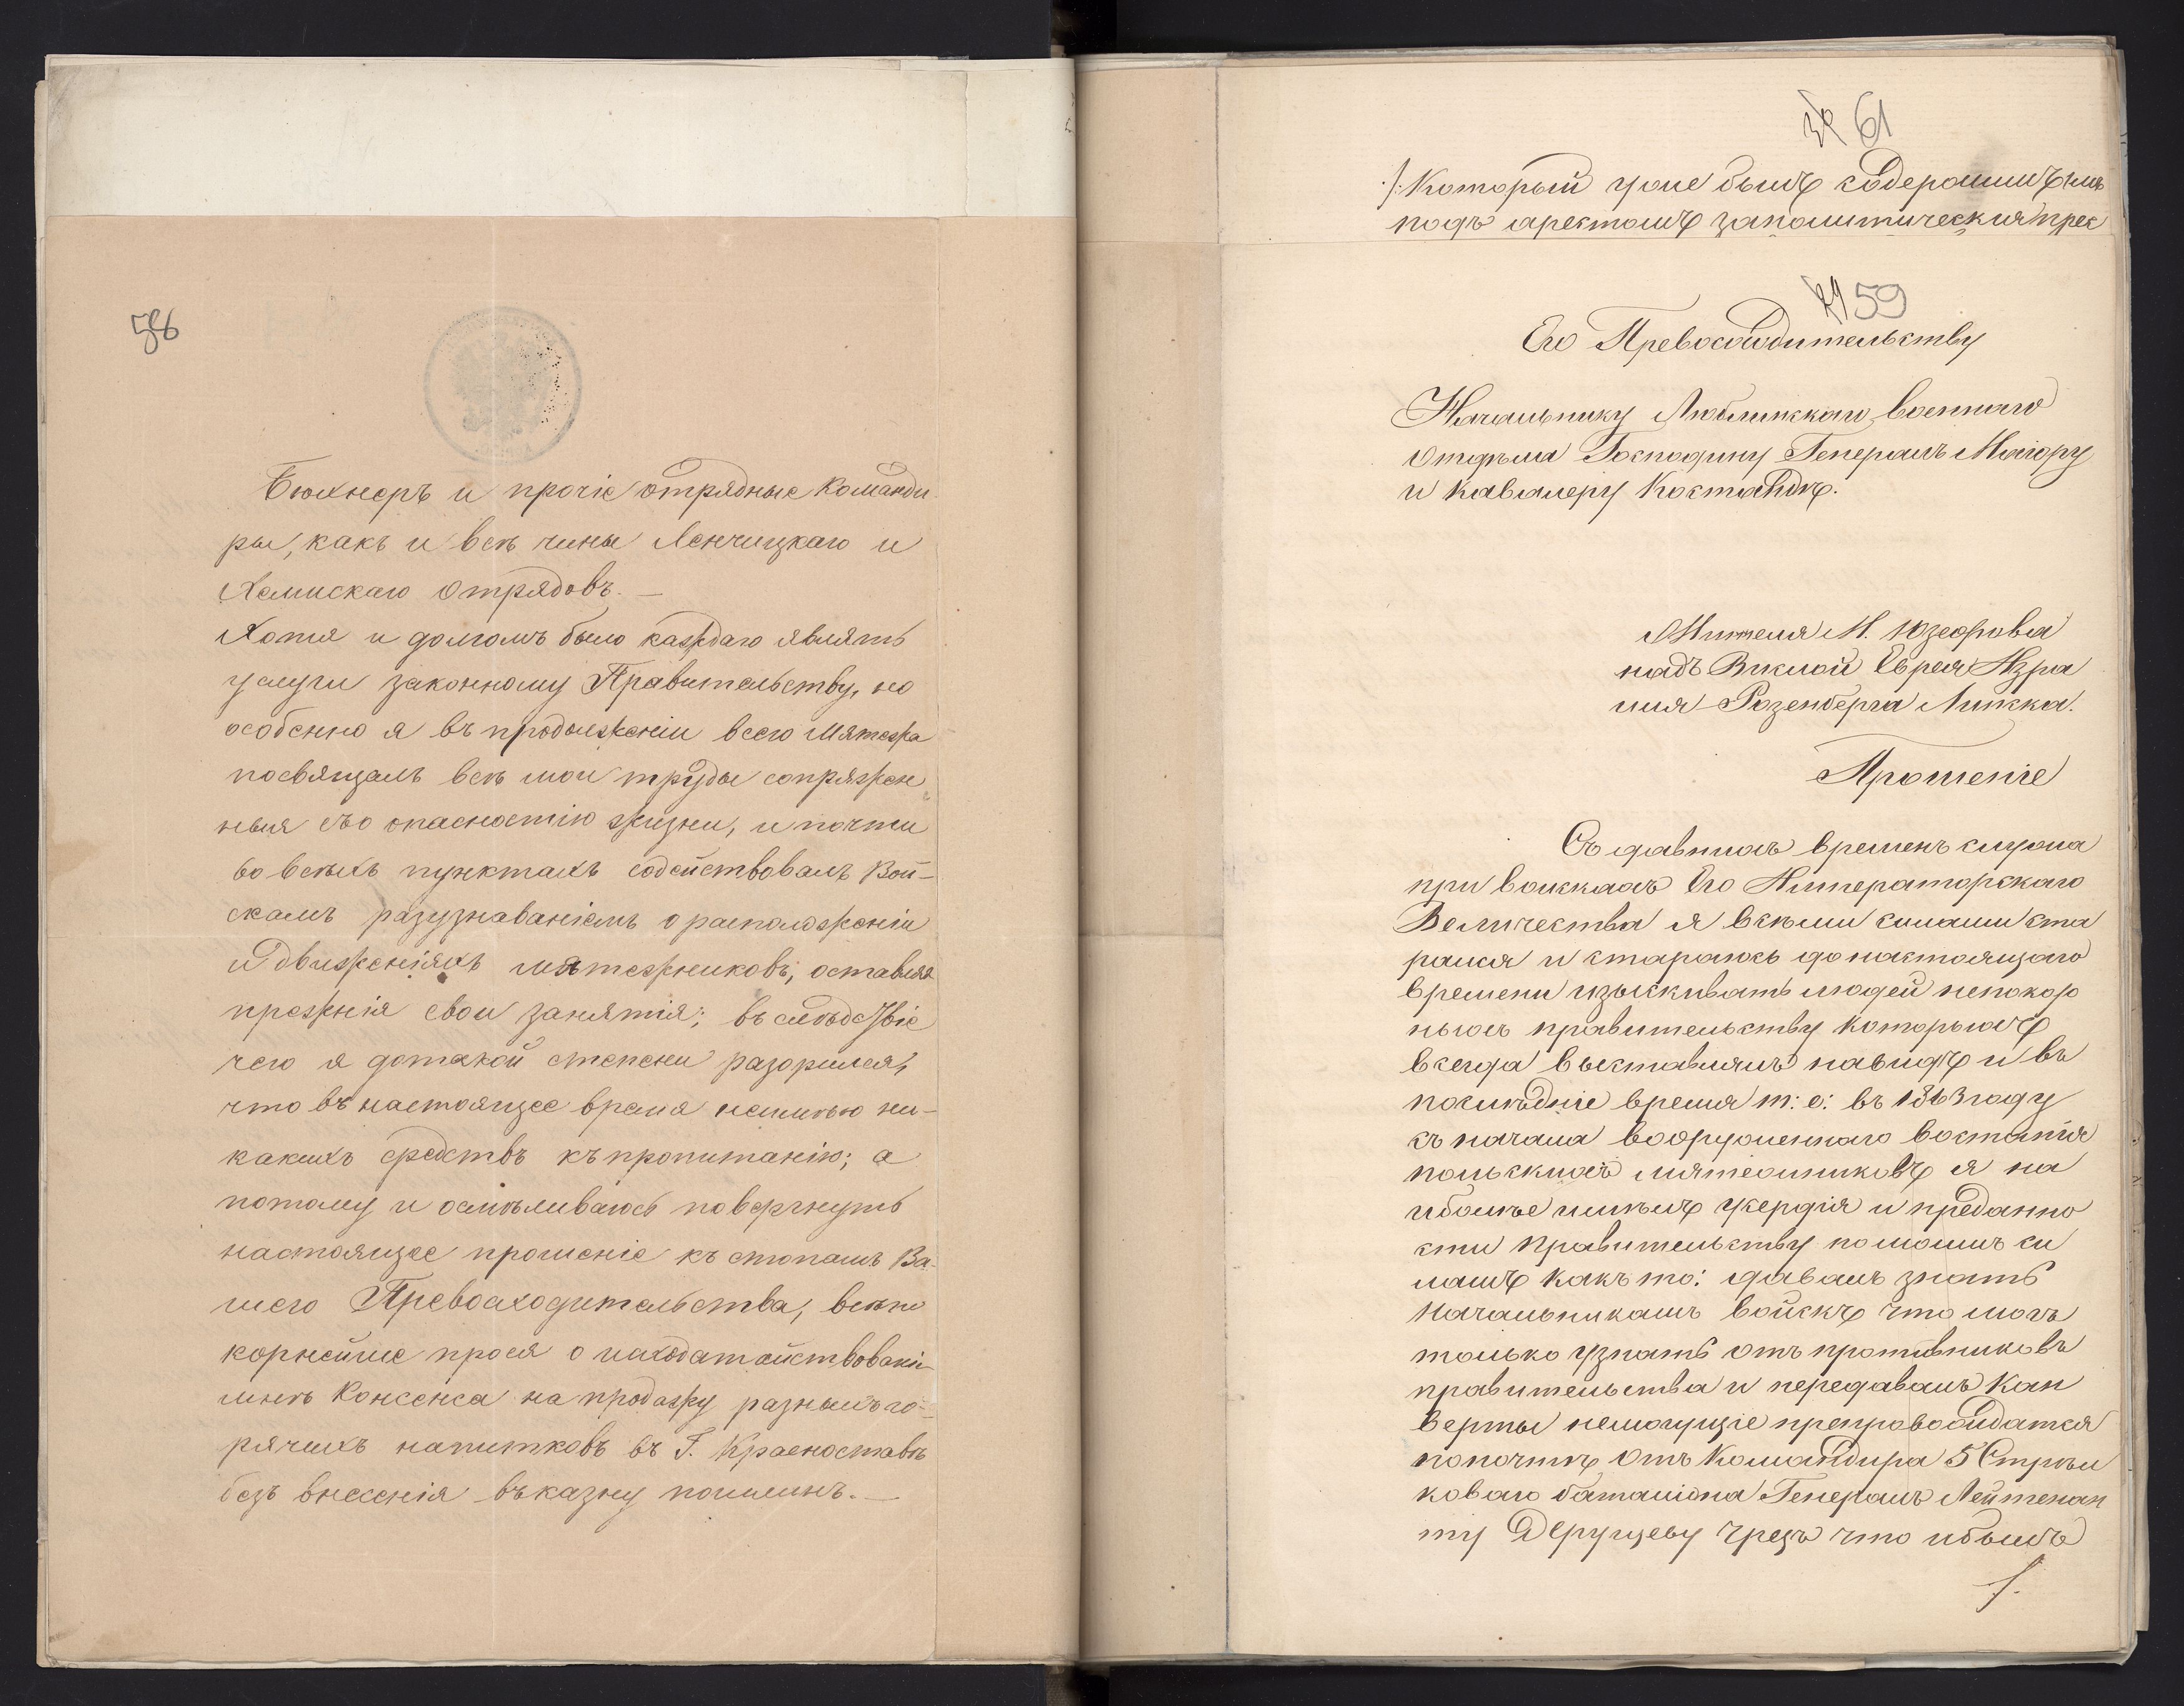 56
Бюхнеръ и прочіе отрядные Команди
ры, какъ и всѣ чины Ленчицкаго и
Хелмскаго Отрядовъ. —
Хотя и долгомъ было каждаго являть
услуги законному Правительству, но
особенно я въ продолженіи всего Мятежа
посвящалъ всѣ мои труды сопряжен„
ныя съ опасностію жизни, и почти
во всѣхъ пунктахъ содействовалъ Вой-
скамъ разузнаваніемъ о расположеніи
и движеніяхъ мятежниковъ, оставляя
прежнія свои занятія; въ слѣдствіе
чего я дотакой степени разорился,
что въ настоящее время неимѣю ни-
какихъ средствъ къ пропитанію; а
потому и осмѣливаюсь повергнуть
настоящее прошеніе къ стопамъ Ва-
шего Превосходительства, всепо
корнейше прося о исходатайствованіи
мнѣ Консенса на продажу разныхъ го-
рячихъ напитковъ въ Г. Красноставѣ
безъ внесенія въ казну пошлинъ. —
61
·/: Который уже былъ содержимъ
подъ арестомъ за политическия прес
59
Его Превосходительству
Начальнику Люблинскаго Военнаго
Отдѣла Господину Генералъ Маіору
и Кавалеру Костанди.
Жителя М. Юзефова
надъ Вислой Еврея Изра
иля Розенберга Лиска.
Прошеніе
Съ давнихъ временъ служа
при войскахъ Его Императорскаго
Величества я всѣми силами ста
рался и стараюсь до настоящаго
времени изыскивать людей непокор
ныхъ правительству которыхъ
всегда выставлялъ на видъ и въ
послѣдніе время т: е: въ 1863 году
съ начала вооруженнаго востанія
польскихъ мятежниковъ я на
иболѣе имѣлъ усердія и преданно
сти правительству помощь си
лашъ какъ то: давалъ знать
Начальникамъ войскъ что могъ
только узнать отъ противниковъ
правительства и передавалъ Кан
верты немогущіе препровождатся
по почтѣ Отъ Командира 5 Стрѣл
коваго баталіона Генералъ Лейтенан
ту чрезъ что и былъ
/.